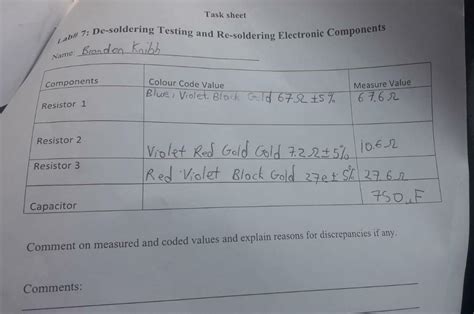 Task sheet
Lab# 7: De-soldering Testing and Re-soldering Electronic Components
Name: Brandon Knibb
Components Colour Code Value Measure Value
Resistor 1 Blue, Violet Black Gold 67Ω ±5% 67.6Ω
Resistor 2 Violet Red Gold Gold 7.2Ω ±5% 10.6Ω
Resistor 3 Red Violet Black Gold 27e ± 5% 27.6Ω
Capacitor 750µF
Comment on measured and coded values and explain reasons for discrepancies if any.
Comments: